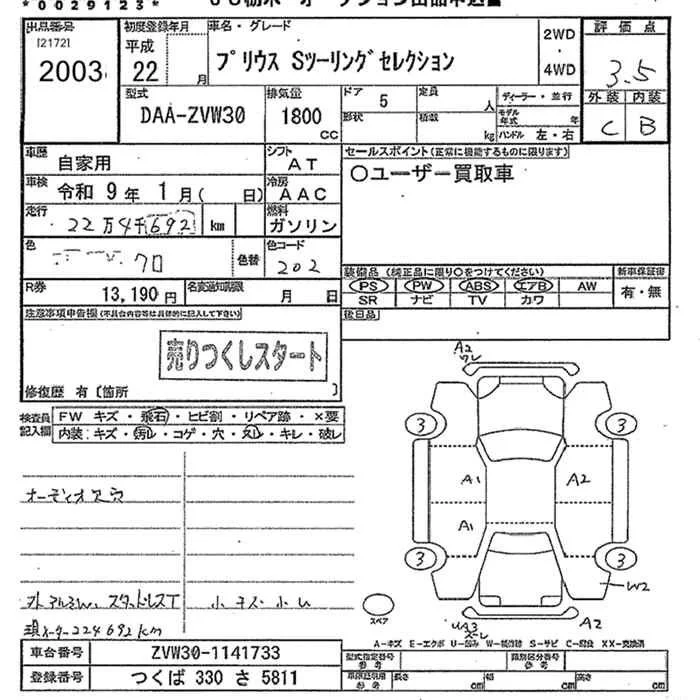 *0029123*
出品番号
[2172]
2003
初度登録年月
平成
22 月
車名・グレード
プリウス Sツーリングセレクション
2WD
・
4WD
評価点
3.5
外装 内装
C B
型式
DAA-ZVW30
排気量
1800
cc
ドア 5
定員 人
形状
積載 kg
ディーラー・並行
モデル年式 年
ハンドル 左・右
車歴 自家用
シフト AT
セールスポイント(正常に機能するものに限ります)
〇ユーザー買取車
車検 令和 9年 1月( 日)
冷房 AAC
走行 22万4千692 km
燃料 ガソリン
色 クロ
色替
色コード 202
装備品 (純正品に限り〇をつけてください)
新車保証書
PS PW ABS エアB AW
SR ナビ TV カワ
有・無
R券 13,190円
名変通知期限 月 日
後日品
注意事項申告欄(不具合内容等は具体的に記入して下さい)
売りつくしスタート
修復歴 有〔箇所 〕
検査員記入欄
FW キズ・飛石・ヒビ割・リペア跡・×要
内装:キズ・汚レ・コゲ・穴・スレ・キレ・破レ
A2
ワレ
3
3
A1
A2
A1
3
3
W2
スペア
A2
オーディオ欠穴
外アルミW、スタッドレスT
小キズ小U
現メーター224692km
A-キズ E-エクボ U-凹み W-補修跡 S-サビ C-腐食 XX-交換済
車台番号 ZVW30-1141733
登録番号 つくば 330 さ 5811
型式指定番号
参考
類別区分番号
参考
長さ cm
幅 cm
高さ cm